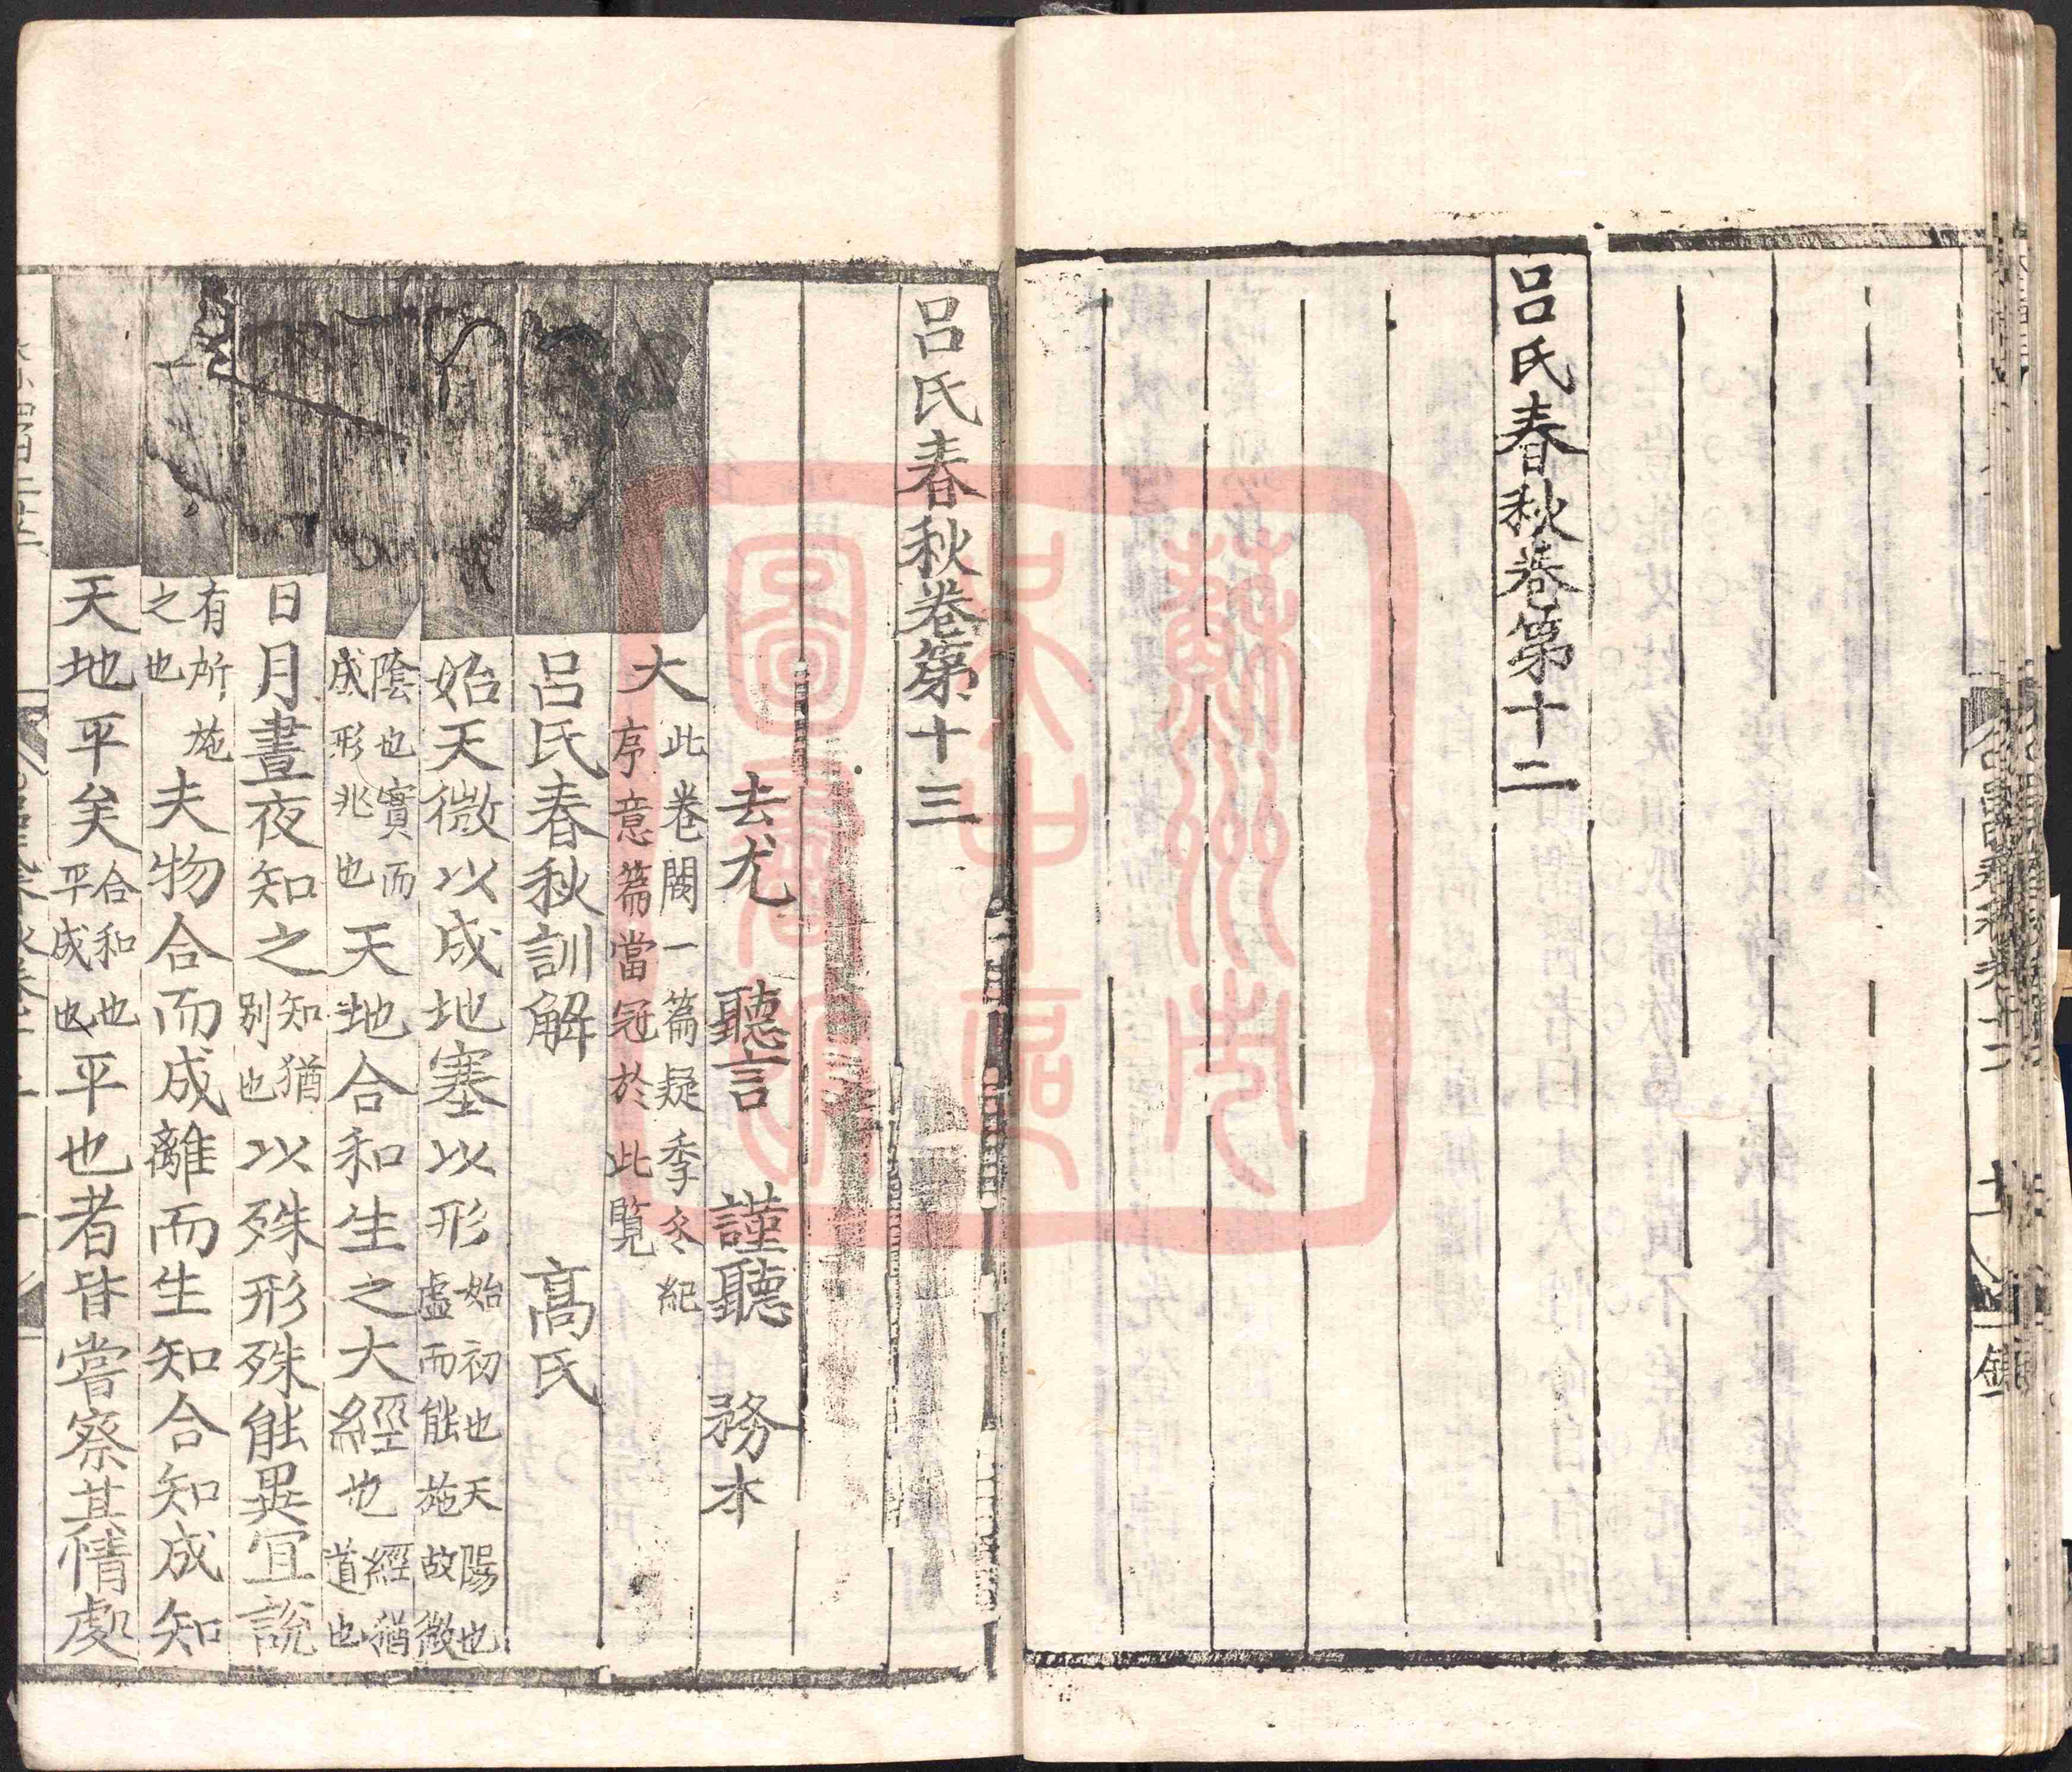 呂氏春秋卷第十二
呂氏春秋卷第十三
去尤 聽言 謹聽 務本
大此卷闕一篇疑季冬紀序意篇當冠於此覽
呂氏春秋訓解 高氏
始天微以成地塞以形始初也天陽也虛而能施故微也
陰也實而成形兆也天地合和生之大經也經猶道也
日月晝夜知之知猶別也以殊形殊能異宜說
有所施之也夫物合而成離而生知合知成知
天地平矣合和也平成也平也者皆嘗察其情處
蘇州市吳中區圖書館